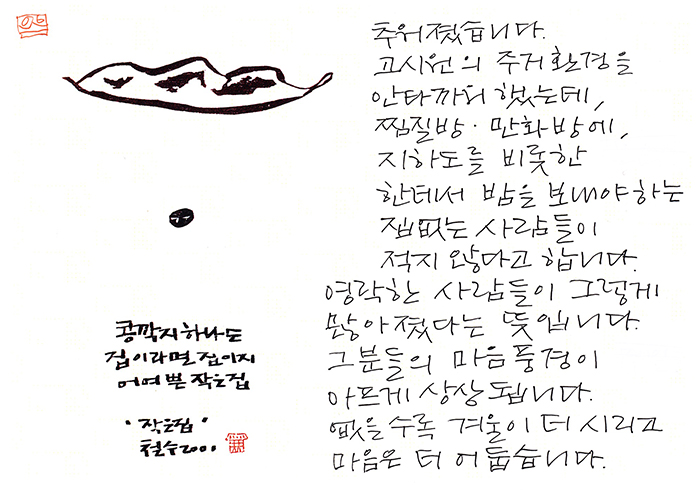 추워졌습니다.
고시원의 주거환경을
안타까워했는데,
찜질방·만화방에,
지하도를 비롯한
한데서 밤을 보내야하는
집없는 사람들이
적지 않다고 합니다.
영락한 사람들이 그렇게
많아졌다는 뜻입니다.
그분들의 마음풍경이
아프게 상상됩니다.
없을수록 겨울이 더 시리고
마음은 더 어둡습니다.
콩깍지하나도
집이라면 집이지
어여쁜 작은집
"작은집"
철수2001